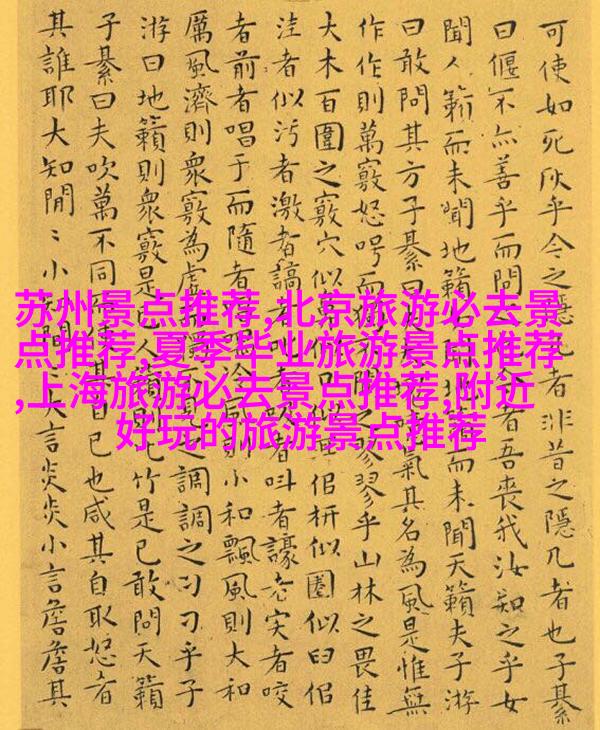 可使如死灰乎今之隱者非昔之隱几者也子綦
曰偃不亦善乎而問者吾喪我汝知之乎女
聞人籟而未聞地籟而未聞天籟夫子游
曰敢問其方子綦曰氣其名為風是惟無
作作則萬竅怒呺而之翏翏乎山林之畏佳
大木百圍之竅穴似佀枅似圈似臼佀
洼者似污者激者謞者者叫者譹者宎者咬
者前者唱于而隨者泠風則小和飄風則大和
厲風濟則衆竅為虛之調調之刁刁乎子
游曰地籟則衆竅是已人籟則比竹是已敢問天籟
子綦曰夫吹萬不同使其自已也咸其自取怒者
其誰耶大知閒〻小大言炎炎小言詹詹其
苏州景点推荐,北京旅游必去景
点推荐,夏季毕业旅游景点推荐
,上海旅游必去景点推荐,附近
好玩的旅游景点推荐